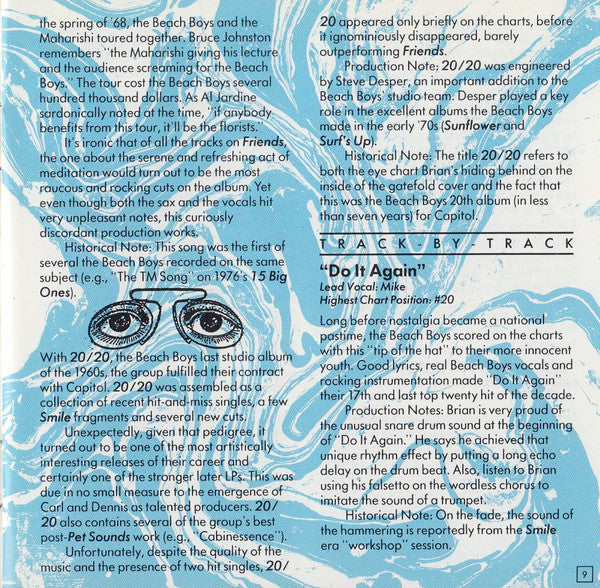 the spring of '68, the Beach Boys and the
Maharishi toured together. Bruce Johnston
remembers "the Maharishi giving his lecture
and the audience screaming for the Beach
Boys." The tour cost the Beach Boys several
hundred thousand dollars. As Al Jardine
sardonically noted at the time, "if anybody
benefits from this tour, it'll be the florists."
It's ironic that of all the tracks on Friends,
the one about the serene and refreshing act of
meditation would turn out to be the most
raucous and rocking cuts on the album. Yet
even though both the sax and the vocals hit
very unpleasant notes, this curiously
discordant production works.
Historical Note: This song was the first of
several the Beach Boys recorded on the same
subject (e.g., "The TM Song" on 1976's 15 Big
Ones).
With 20/20, the Beach Boys last studio album
of the 1960s, the group fulfilled their contract
with Capitol. 20/20 was assembled as a
collection of recent hit-and-miss singles, a few
Smile fragments and several new cuts.
Unexpectedly, given that pedigree, it
turned out to be one of the most artistically
interesting releases of their career and
certainly one of the stranger later LPs. This was
due in no small measure to the emergence of
Carl and Dennis as talented producers. 20/
20 also contains several of the group's best
post-Pet Sounds work (e.g., "Cabinessence").
Unfortunately, despite the quality of the
music and the presence of two hit singles, 20/
20 appeared only briefly on the charts, before
it ignominiously disappeared, barely
outperforming Friends.
Production Note: 20/20 was engineered
by Steve Desper, an important addition to the
Beach Boys' studio team. Desper played a key
role in the excellent albums the Beach Boys
made in the early '70s (Sunflower and
Surf's Up).
Historical Note: The title 20/20 refers to
both the eye chart Brian's hiding behind on the
inside of the gatefold cover and the fact that
this was the Beach Boys 20th album (in less
than seven years) for Capitol.
TRACK-BY-TRACK
"Do It Again"
Lead Vocal: Mike
Highest Chart Position: #20
Long before nostalgia became a national
pastime, the Beach Boys scored on the charts
with this "tip of the hat" to their more innocent
youth. Good lyrics, real Beach Boys vocals and
rocking instrumentation made "Do It Again"
their 17th and last top twenty hit of the decade.
Production Notes: Brian is very proud of
the unusual snare drum sound at the beginning
of "Do It Again." He says he achieved that
unique rhythm effect by putting a long echo
delay on the drum beat. Also, listen to Brian
using his falsetto on the wordless chorus to
imitate the sound of a trumpet.
Historical Note: On the fade, the sound of
the hammering is reportedly from the Smile
era "workshop" session.
9